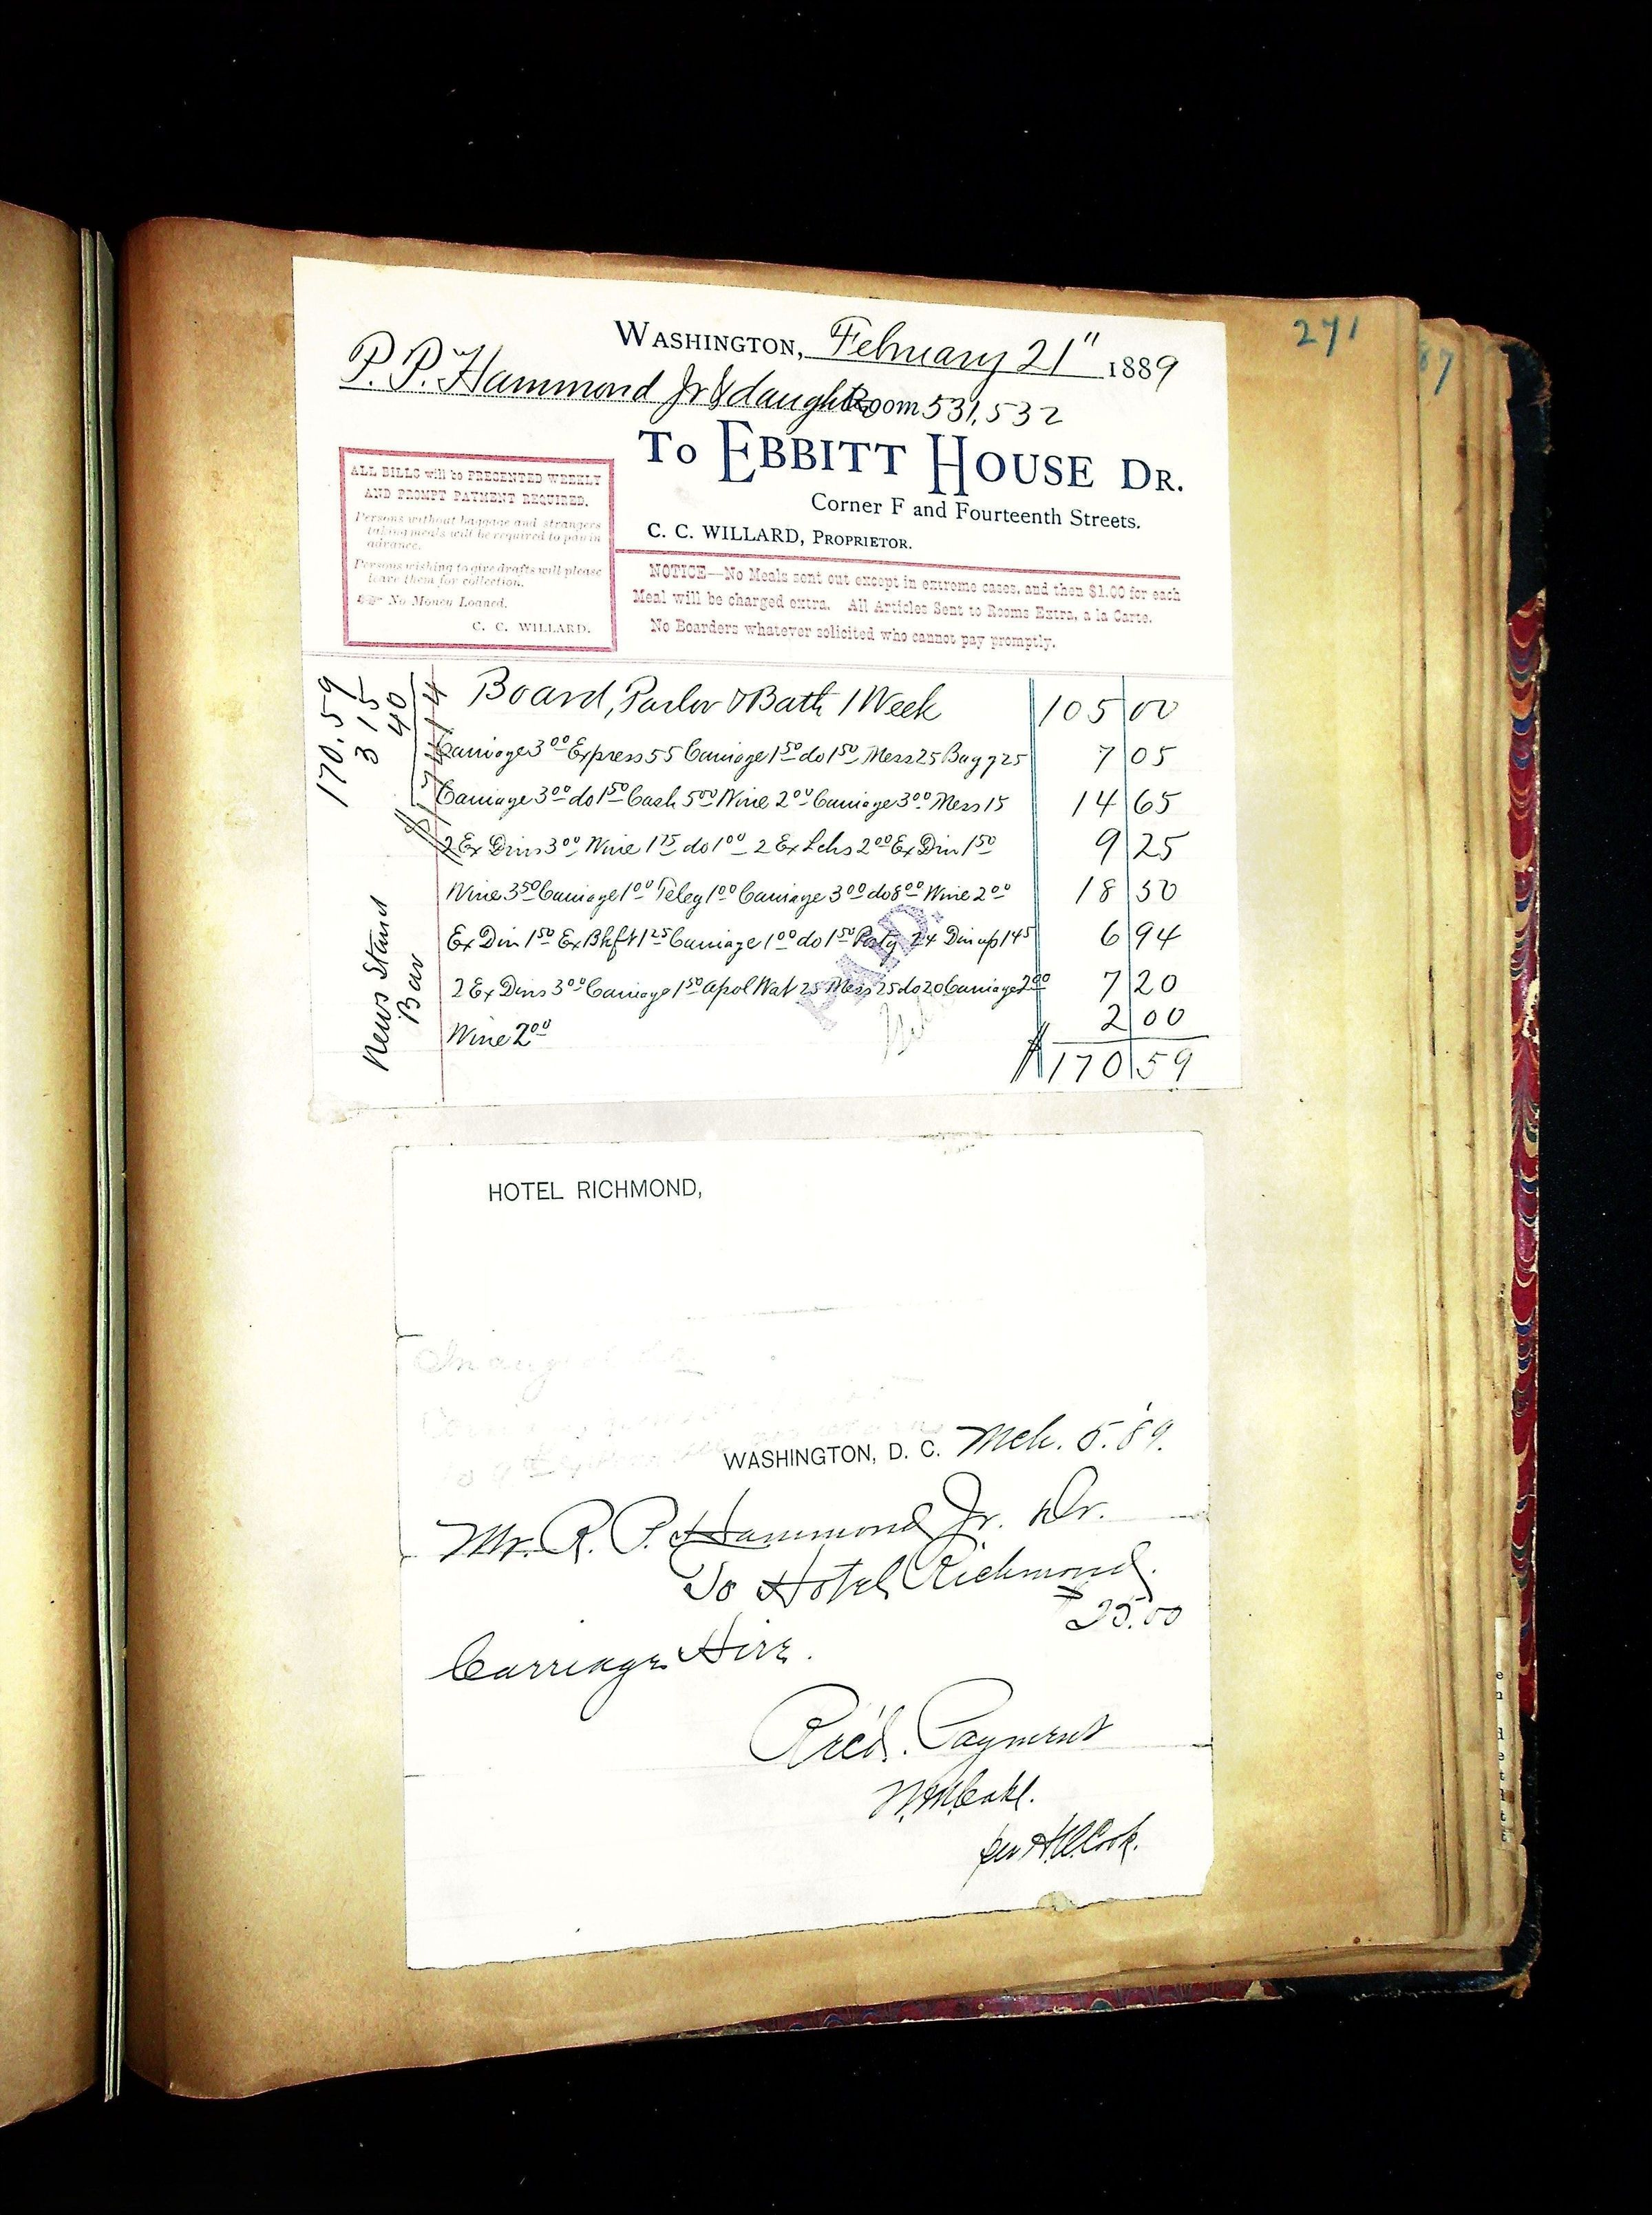 271
87
WASHINGTON, February 21" 1889
P. P. Hammond Jr & daught Room 531, 532
To EBBITT HOUSE DR.
Corner F and Fourteenth Streets.
C. C. WILLARD, PROPRIETOR.
ALL BILLS will be PRESENTED WEEKLY
AND PROMPT PAYMENT REQUIRED.
Persons without baggage and strangers
taking meals will be required to pay in
advance.
Persons wishing to give drafts will please
leave them for collection.
No Money Loaned.
C. C. WILLARD.
NOTICE—No Meals sent out except in extreme cases, and then $1.00 for each
Meal will be charged extra. All Articles Sent to Rooms Extra, a la Carte.
No Boarders whatever solicited who cannot pay promptly.
Board, Parlor & Bath 1 Week 105 00
Carriage 3 00 Express 55 Carriage 1 50 do 1 50 Mess 25 Bagg 25 7 05
Carriage 3 00 do 1 50 Cash 5 00 Wine 2 00 Carriage 3 00 Mess 15 14 65
2 Ex Dins 3 00 Wine 1 75 do 1 00 2 Ex Lchs 2 00 Ex Din 1 50 9 25
Wine 3 50 Carriage 1 00 Teleg 1 00 Carriage 3 00 do 8 00 Wine 2 00 18 50
Ex Din 1 50 Ex Bkft 1 25 Carriage 1 00 do 1 50 24 Din up 1 45 6 94
2 Ex Dins 3 00 Carriage 1 50 Apol Wat 25 Mess 25 do 20 Carriage 2 00 7 20
Wine 2 00 2 00
$170 59
PAID.
News Stand 3 15
Bar 40
170.59
$174 14
HOTEL RICHMOND,
WASHINGTON, D. C. Mch. 5. '89.
Mr. R. P. Hammond Jr. Dr.
To Hotel Richmond.
$25.00
Carriage Hire.
Rec'd. Payment
per H. W. Cook.